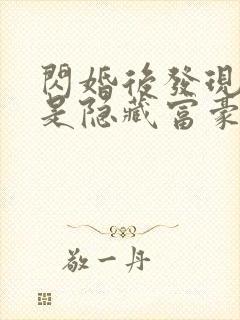 閃婚後發現
是隐藏富豪
敬一丹